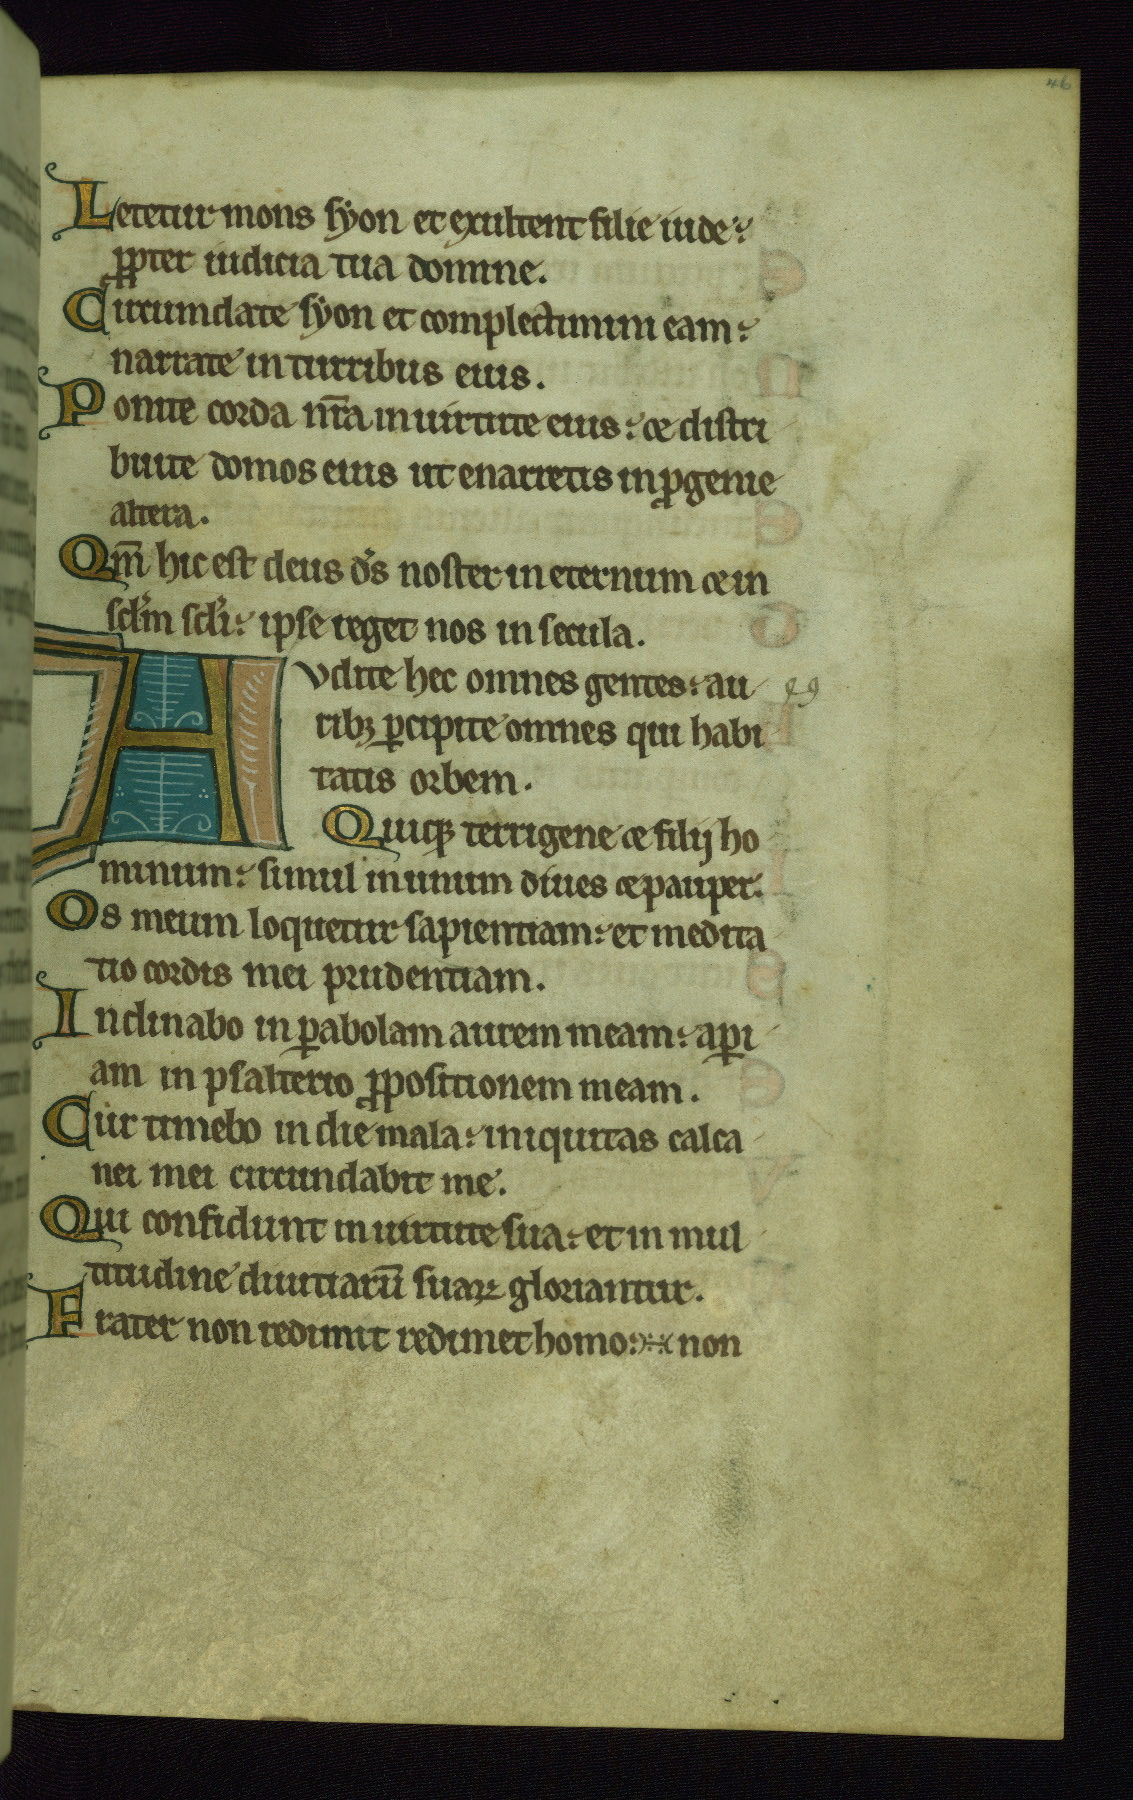 46
Letetur mons syon et exultent filie iude:
ꝓpter iudicia tua domine.
Circumdate syon et complectimini eam:
narrate in turribus eius.
Ponite corda nr̄a in uirtute eius: ⁊ distri
buite domos eius ut enarretis in ꝓgenie
altera.
Qm̄ hic est deus ds̄ noster in eternum ⁊ in
sclm̄ scli: ipse reget nos in secula.
Audite hec omnes gentes: au
ribꝫ ꝑcipite omnes qui habi
tatis orbem.
Quiqꝫ terrigene ⁊ filij ho
minum: simul in unum diues ⁊ pauper.
Os meum loquetur sapientiam: et medita
tio cordis mei prudentiam.
Inclinabo in ꝑabolam aurem meam: aꝑi
am in psalterio ꝓpositionem meam.
Cur timebo in die mala: iniquitas calca
nei mei circundabit me.
Qui confidunt in uirtute sua: et in mul
titudine diuitiarū suaꝝ gloriantur.
Frater non redimit redimet homo: non